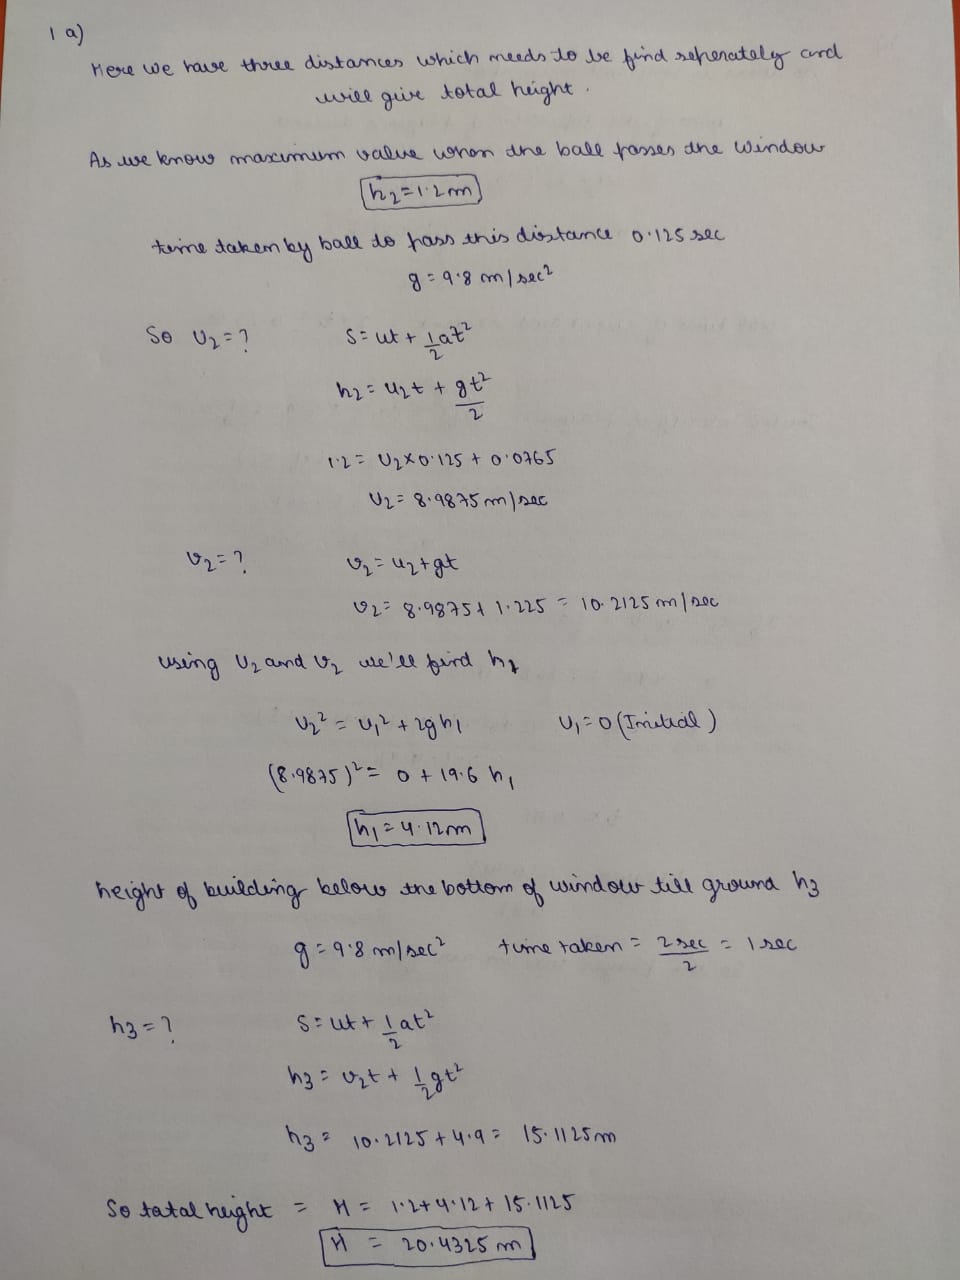 1 a)
Here we have three distances which needs to be find seperately and
will give total height.
As we know maximum value when the ball passes the window
h₂ = 1.2m
time taken by ball to pass this distance 0.125 sec
g = 9.8 m/sec²
So U₂ = ? S = ut + 1/2 at²
h₂ = u₂t + gt²/2
1.2 = U₂ × 0.125 + 0.0765
U₂ = 8.9875 m/sec
v₂ = ? v₂ = u₂ + gt
v₂ = 8.9875 + 1.225 = 10.2125 m/sec
using U₂ and v₂ we'll find h₁
U₂² = U₁² + 2gh₁ U₁ = 0 (Initial)
(8.9875)² = 0 + 19.6 h₁
h₁ = 4.12m
height of building below the bottom of window till ground h₃
g = 9.8 m/sec² time taken = 2 sec/2 = 1 sec
h₃ = ? S = ut + 1/2 at²
h₃ = v₂t + 1/2 gt²
h₃ = 10.2125 + 4.9 = 15.1125m
So total height = H = 1.2 + 4.12 + 15.1125
H = 20.4325 m